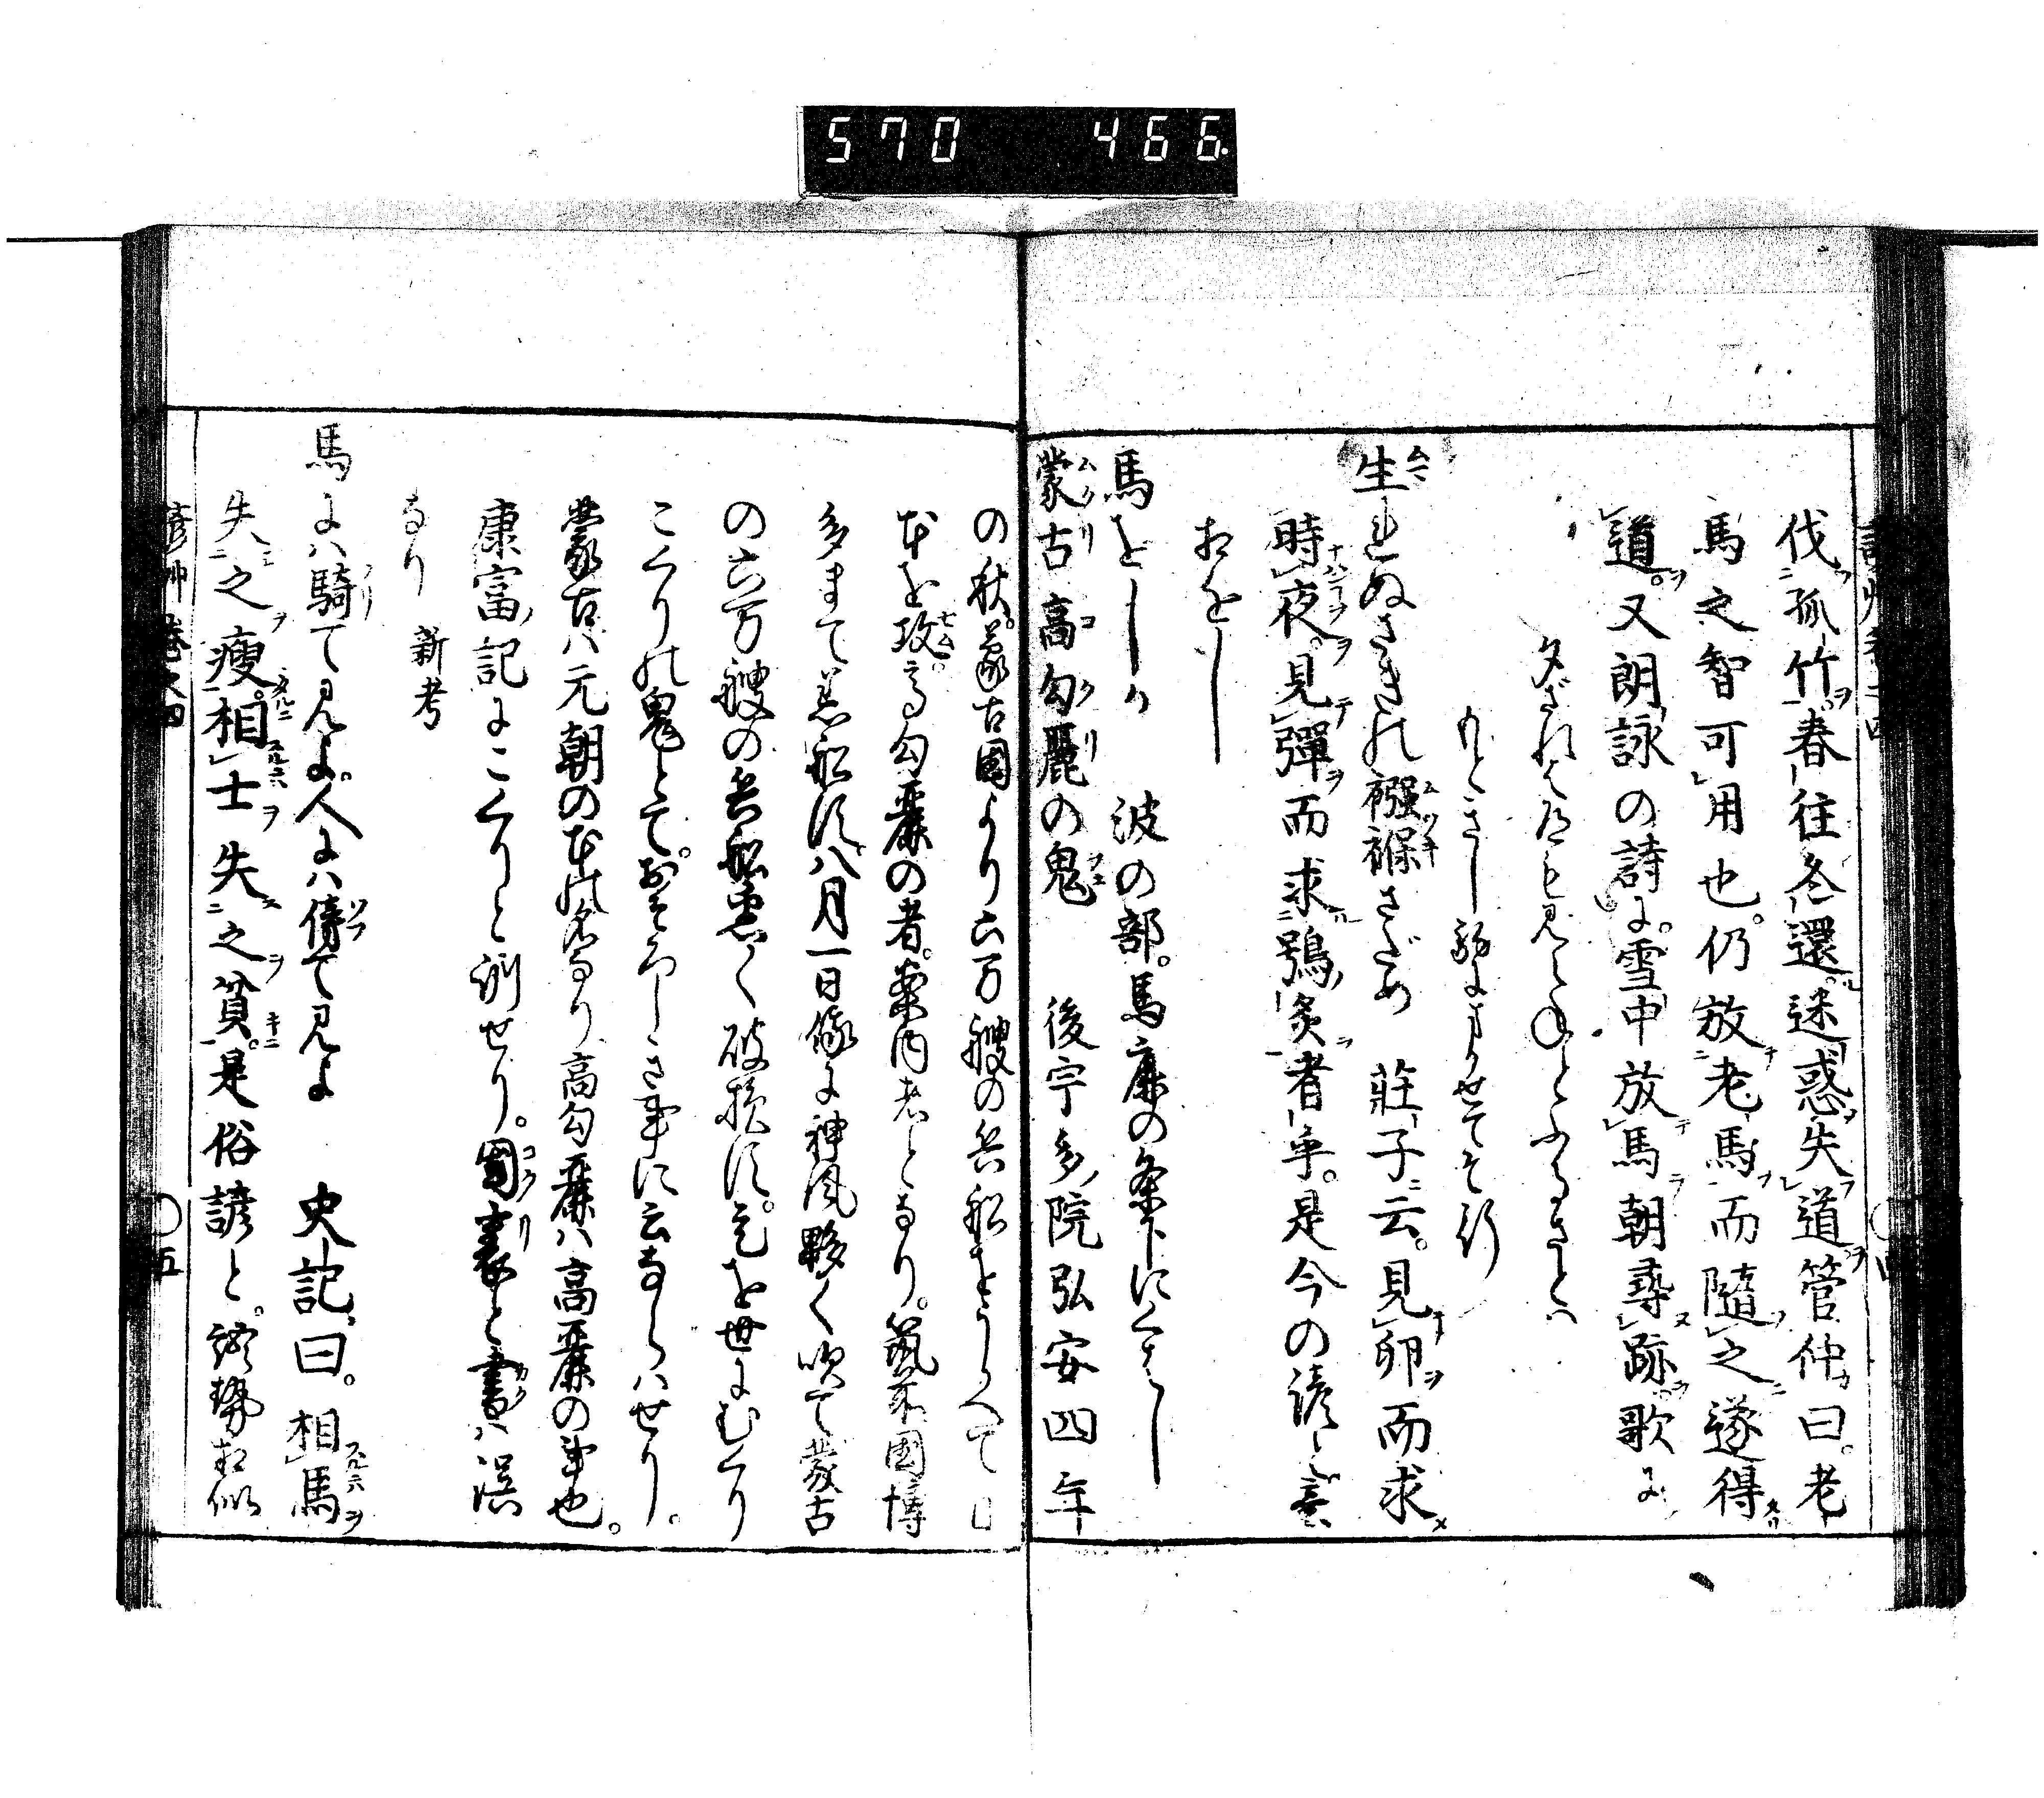 570 466
伐孤竹春往冬還迷惑失道管仲曰。老
馬之智可用也。仍放老馬而隨之遂得
道。又朗詠の詩に。雪中放馬朝尋跡歌に
夕ざれは道も見えねとふるさとは
もとこし駒にまかせてそ行
生れぬさきの襁褓さだめ 莊子云。見卵而求
時夜。見彈而求鴞炙者乎。是今の諺と意
おなし
馬をしか 波の部。馬鹿の条下にくはし
蒙古高勾麗の鬼 後宇多院弘安四年
の秋。蒙古國より六万艘の兵船をうかへて日
本を攻む。高勾麗の者。案内者となり。筑前國博
多まて着船す八月一日俄に神風夥く吹て蒙古
の六万艘の兵船悉く破損す。是を世にむくり
こくりの鬼とて。おそろしき事に云ならはせり。
蒙古ハ元朝の本の名なり高勾麗ハ高麗の事也。
康富記にこくりと訓せり。國裏と書ハ誤
なり 新考
馬にハ騎て見よ。人にハ傍て見よ 史記曰。相馬
失之瘦。相士失之貧。是俗諺と。語勢相似
諺艸 卷之四 〇五